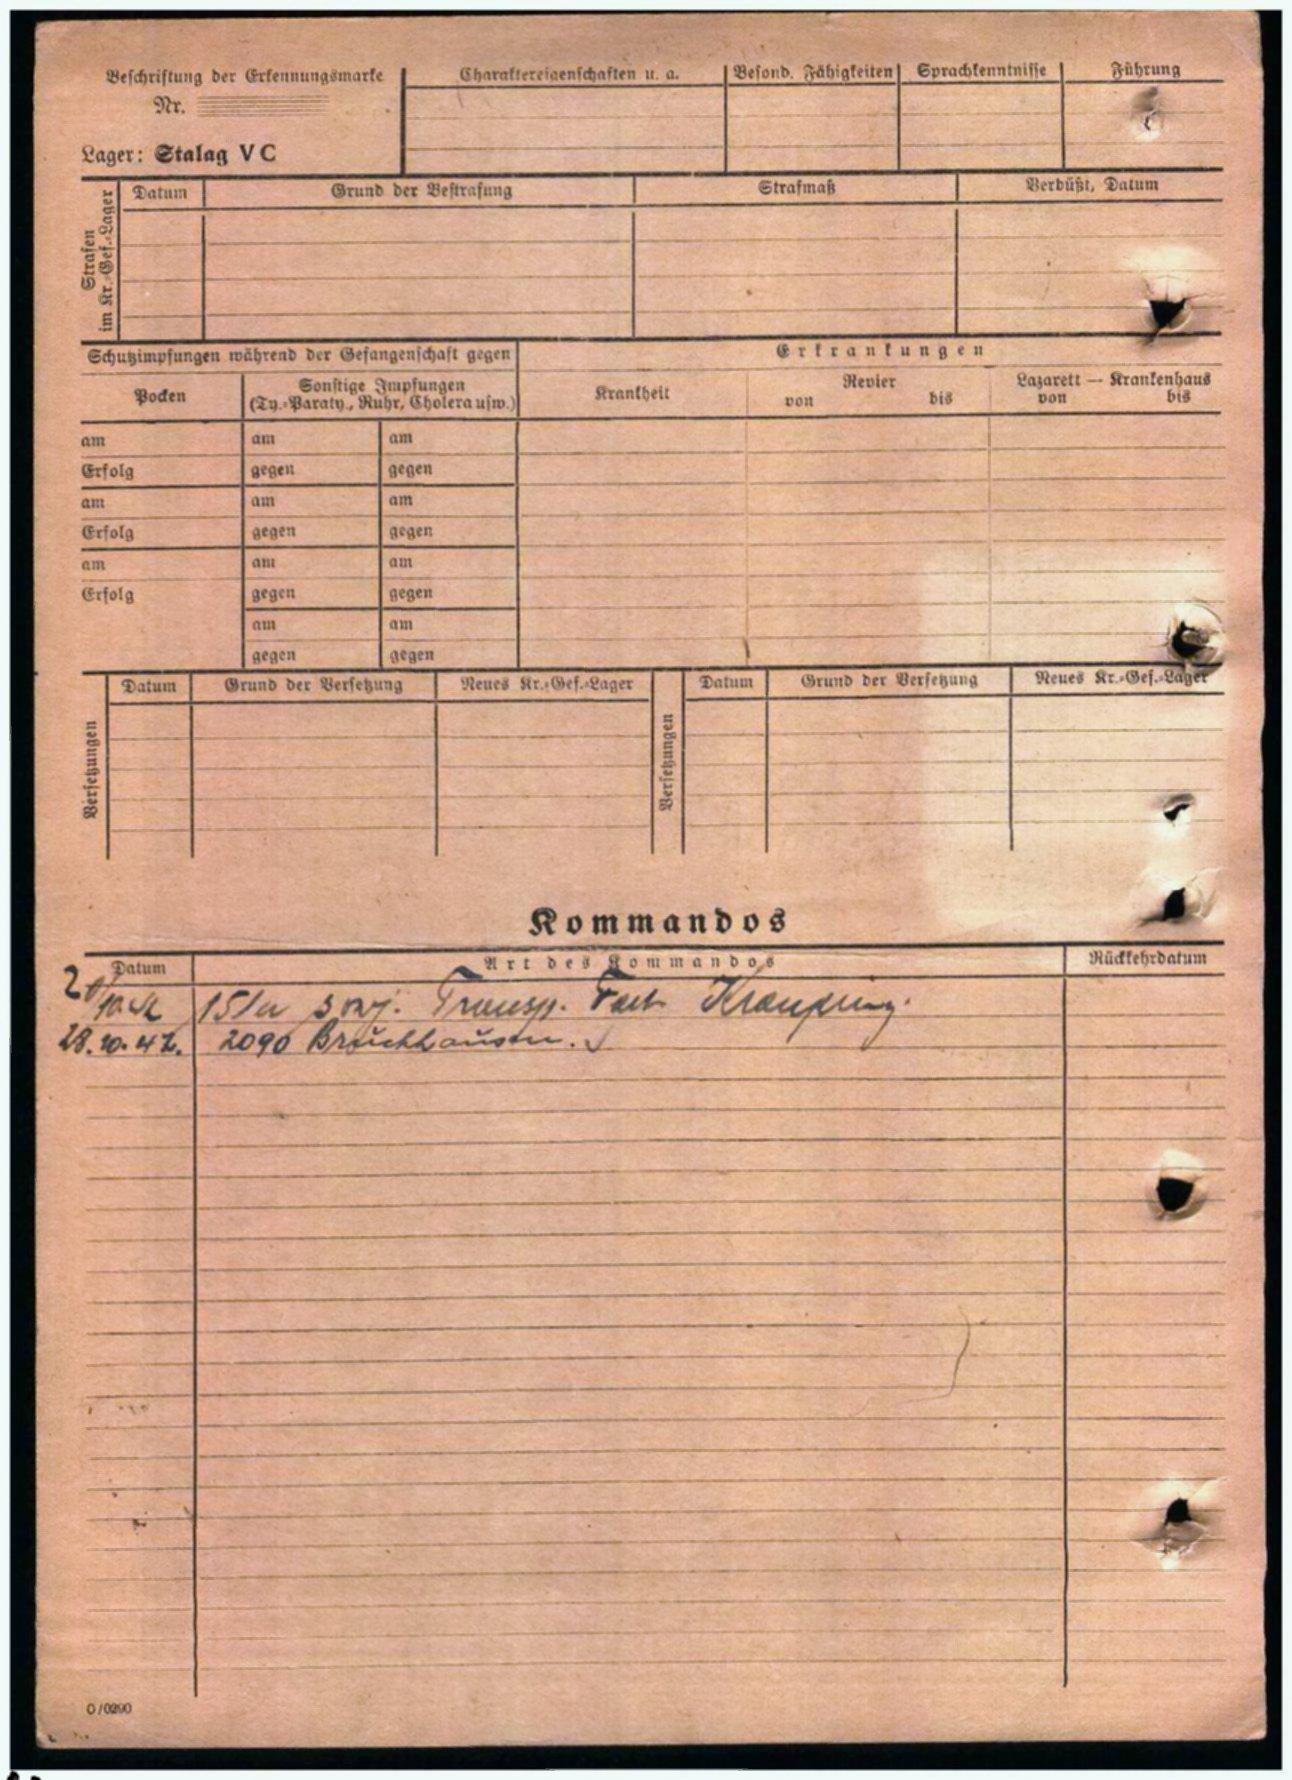 Beschriftung der Erkennungsmarke
Nr.
Lager: Stalag V C
Charaktereigenschaften u. a.
Besond. Fähigkeiten
Sprachkenntnisse
Führung
Strafen
im Kr.=Gef.=Lager
Datum
Grund der Bestrafung
Strafmaß
Verbüßt, Datum
Schutzimpfungen während der Gefangenschaft gegen
Erkrankungen
Pocken
Sonstige Impfungen
(Ty.=Paraty., Ruhr, Cholera usw.)
Krankheit
Revier
von bis
Lazarett — Krankenhaus
von bis
am am am
Erfolg gegen gegen
am am am
Erfolg gegen gegen
am am am
Erfolg gegen gegen
am am
gegen gegen
Versetzungen
Datum
Grund der Versetzung
Neues Kr.=Gef.=Lager
Versetzungen
Datum
Grund der Versetzung
Neues Kr.=Gef.=Lager
Kommandos
Datum
Art des Kommandos
Rückkehrdatum
sowj. Transp.
28.10.42. 2090 Bruchhausen.
O/0290